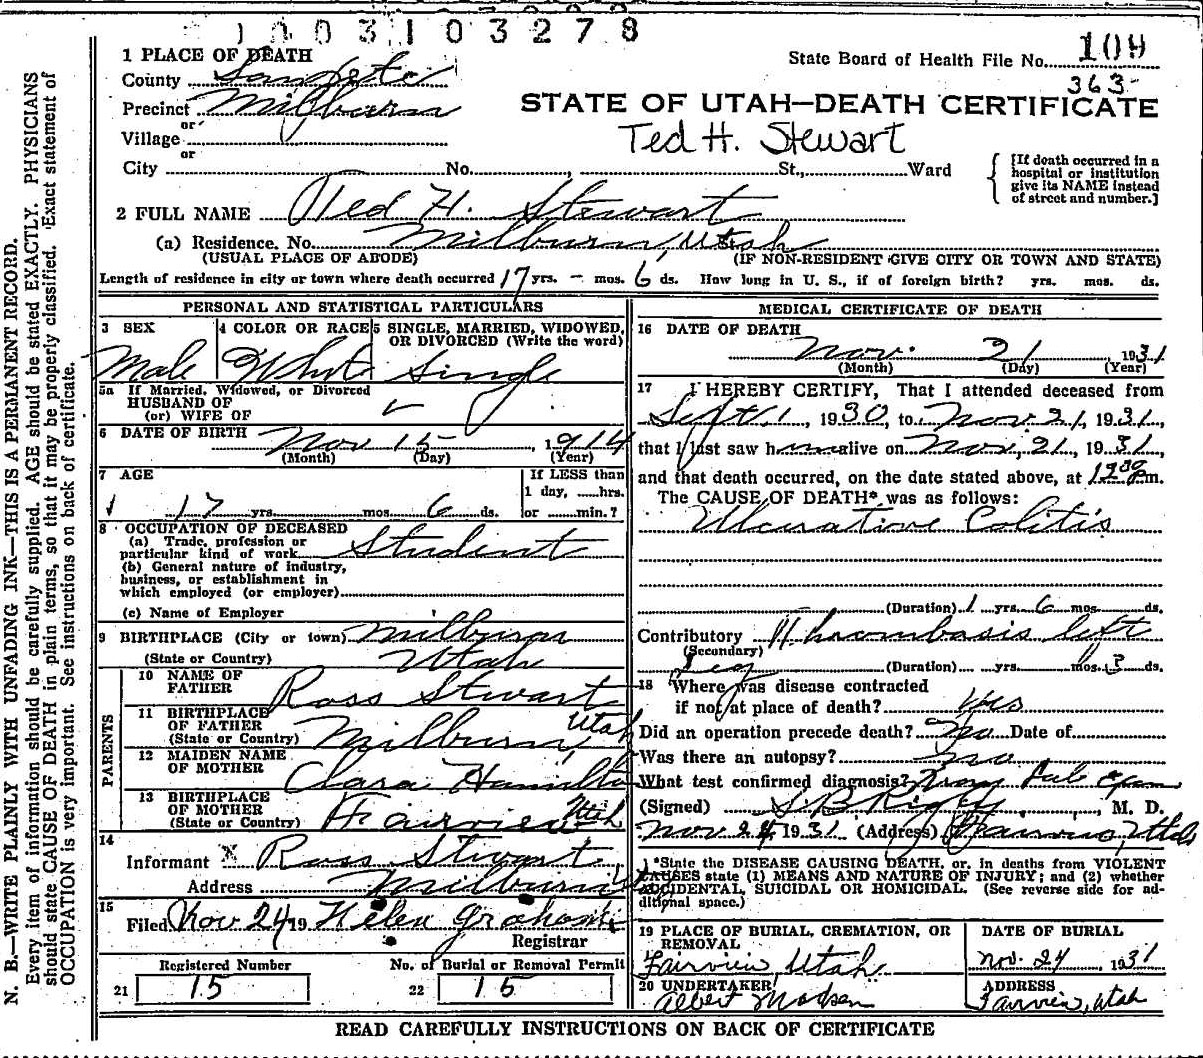 1003103278
State Board of Health File No. 104
363
1 PLACE OF DEATH
County Sanpete
Precinct Milburn
or
Village
or
City No. St., Ward
STATE OF UTAH—DEATH CERTIFICATE
Ted H. Stewart
[If death occurred in a
hospital or institution
give its NAME instead
of street and number.]
2 FULL NAME Ted H. Stewart
(a) Residence. No. Milburn, Utah
(USUAL PLACE OF ABODE) (IF NON-RESIDENT GIVE CITY OR TOWN AND STATE)
Length of residence in city or town where death occurred 17 yrs. - mos. 6 ds. How long in U. S., if of foreign birth? yrs. mos. ds.
PERSONAL AND STATISTICAL PARTICULARS
3 SEX 4 COLOR OR RACE 5 SINGLE, MARRIED, WIDOWED,
OR DIVORCED (Write the word)
Male White Single
5a If Married, Widowed, or Divorced
HUSBAND OF
(or) WIFE OF
6 DATE OF BIRTH Nov 15 1914
(Month) (Day) (Year)
7 AGE If LESS than
1 day, hrs.
17 yrs. mos. 6 ds. or min.?
8 OCCUPATION OF DECEASED
(a) Trade, profession or
particular kind of work Student
(b) General nature of industry,
business, or establishment in
which employed (or employer)
(c) Name of Employer
9 BIRTHPLACE (City or town) Milburn
(State or Country) Utah
PARENTS
10 NAME OF
FATHER Ross Stewart
11 BIRTHPLACE
OF FATHER
(State or Country) Milburn, Utah
12 MAIDEN NAME
OF MOTHER Clara Hamilton
13 BIRTHPLACE
OF MOTHER
(State or Country) Fairview Utah
14
Informant X Ross Stewart
Address Milburn
15
Filed Nov 24 19 Helen Graham
Registrar
Registered Number No. of Burial or Removal Permit
21 15 22 15
MEDICAL CERTIFICATE OF DEATH
16 DATE OF DEATH
Nov. 21, 1931
(Month) (Day) (Year)
17 I HEREBY CERTIFY, That I attended deceased from
Sept 1, 1930, to Nov 21, 1931,
that I last saw him alive on Nov, 21, 1931,
and that death occurred, on the date stated above, at pm.
The CAUSE OF DEATH* was as follows:
Ulcerative Colitis
(Duration) 1 yrs. 6 mos. ds.
Contributory Thrombosis left
(Secondary)
Leg (Duration) yrs. mos. 3 ds.
18 Where was disease contracted
if not at place of death? yes
Did an operation precede death? No Date of
Was there an autopsy? no
What test confirmed diagnosis?
(Signed) S B Rigby, M. D.
Nov 24, 1931 (Address) Fairview, Utah
*State the DISEASE CAUSING DEATH, or, in deaths from VIOLENT
CAUSES state (1) MEANS AND NATURE OF INJURY; and (2) whether
ACCIDENTAL, SUICIDAL OR HOMICIDAL. (See reverse side for ad-
ditional space.)
19 PLACE OF BURIAL, CREMATION, OR
REMOVAL
Fairview, Utah
DATE OF BURIAL
Nov. 24, 1931
20 UNDERTAKER
Albert Madsen
ADDRESS
Fairview, Utah
READ CAREFULLY INSTRUCTIONS ON BACK OF CERTIFICATE
N. B.—WRITE PLAINLY WITH UNFADING INK—THIS IS A PERMANENT RECORD.
Every item of information should be carefully supplied. AGE should be stated EXACTLY. PHYSICIANS
should state CAUSE OF DEATH in plain terms, so that it may be properly classified. Exact statement of
OCCUPATION is very important. See instructions on back of certificate.